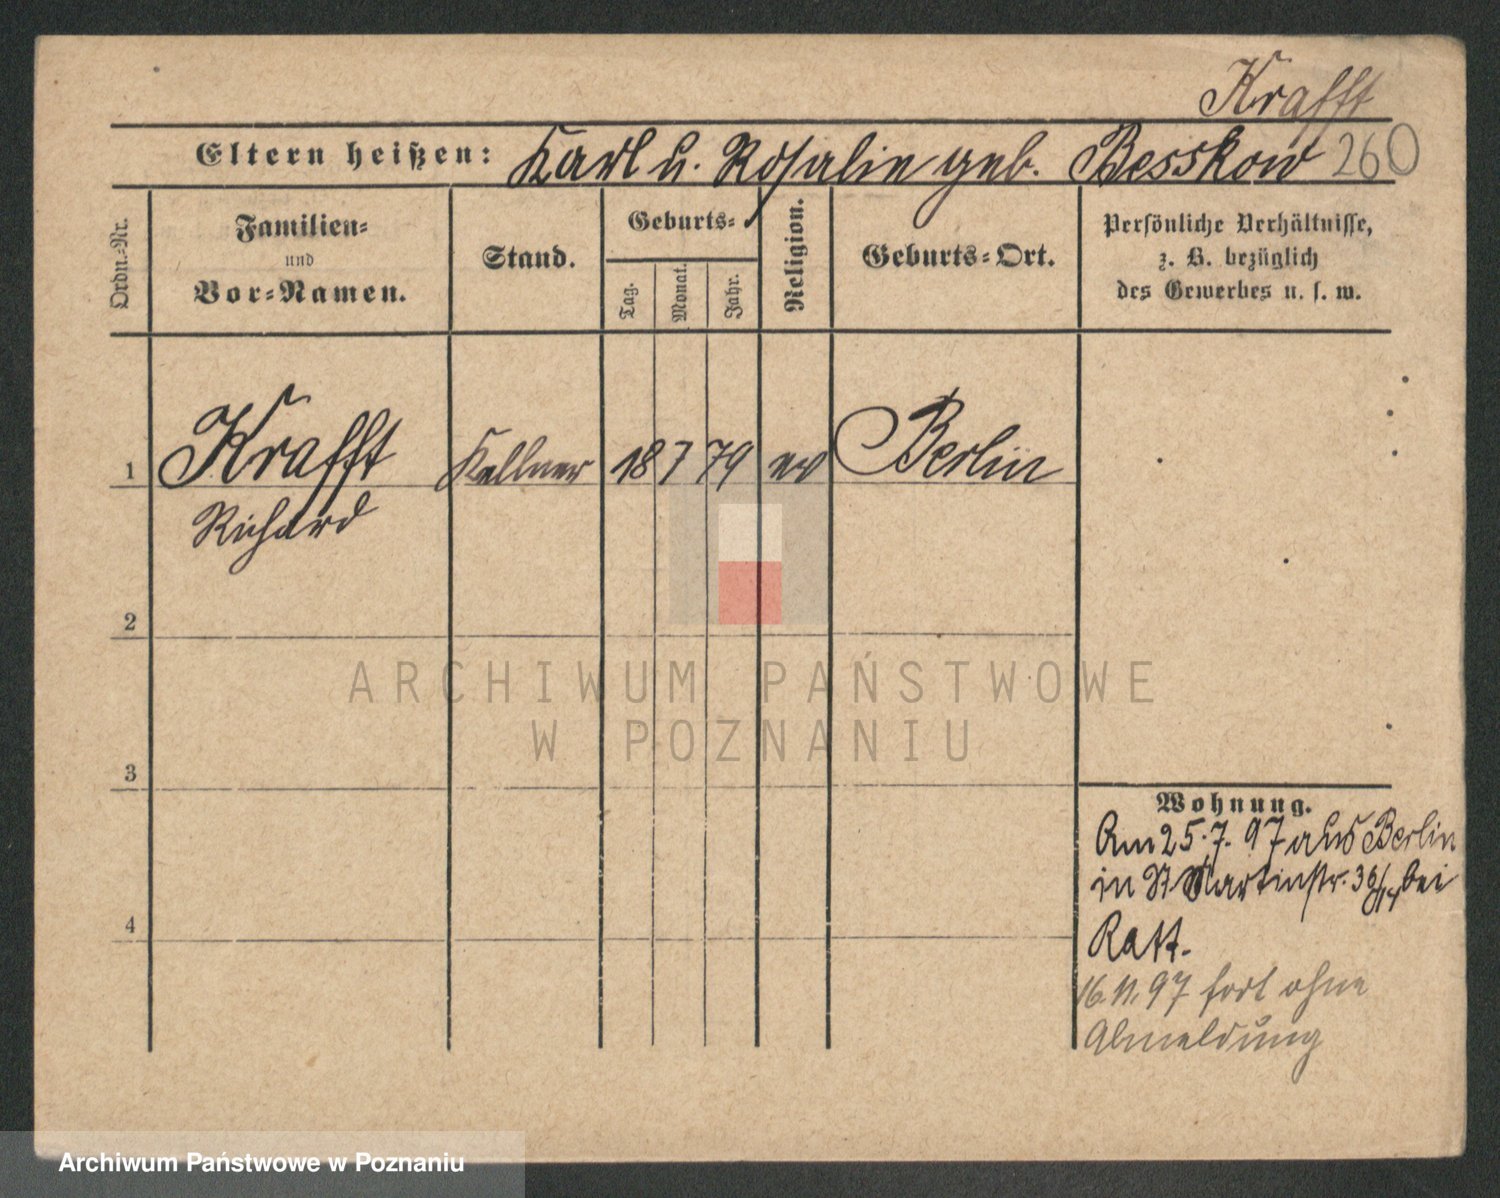 Krafft
Eltern heißen: Karl u. Rosalie geb. Besskow 260
Ordn.-Nr.
Familien-
und
Vor-Namen.
Stand.
Geburts-
Tag.
Monat.
Jahr.
Religion.
Geburts-Ort.
Persönliche Verhältnisse,
z. B. bezüglich
des Gewerbes u. s. w.
1 Krafft Kellner 18 7 79 ev Berlin
Richard
2
3
4
Wohnung.
Am 25.7.97 aus Berlin
in St Martinstr. bei
Ratt.
16.11.97 fort ohne
Abmeldung
ARCHIWUM PAŃSTWOWE
W POZNANIU
Archiwum Państwowe w Poznaniu